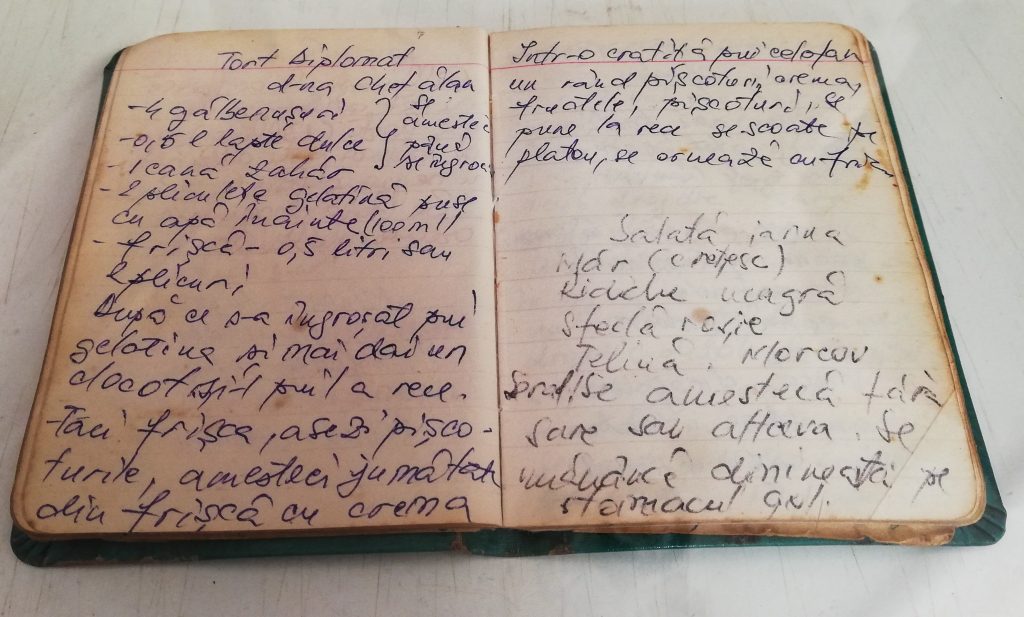 Tort Diplomat
d-na Chefălan
- 4 gălbenușuri } se
- 0,5 l lapte dulce } amestecă până
- 1 cană zahăr se îngroaș
- 2 pliculețe gelatină puse
cu apă înainte (100ml)
- frișcă - 0,5 litri sau
2 plicuri
După ce s-a îngroșat pui
gelatina și mai dai un
clocot și-l pui la rece.
Faci frișca, așezi pișco-
turile, amesteci jumătate
din frișcă cu crema
Într-o cratiță pui celofan
un rând pișcoturi, crema,
fructele, pișcoturi, se
pune la rece se scoate pe
platou, se ornează cu frișcă
Salată iarna
Măr (crețesc)
Ridiche neagră
Sfeclă roșie
Țelină. Morcov
se amestecă fără
sare sau altceva. Se
mănâncă dimineața pe
stomacul gol.